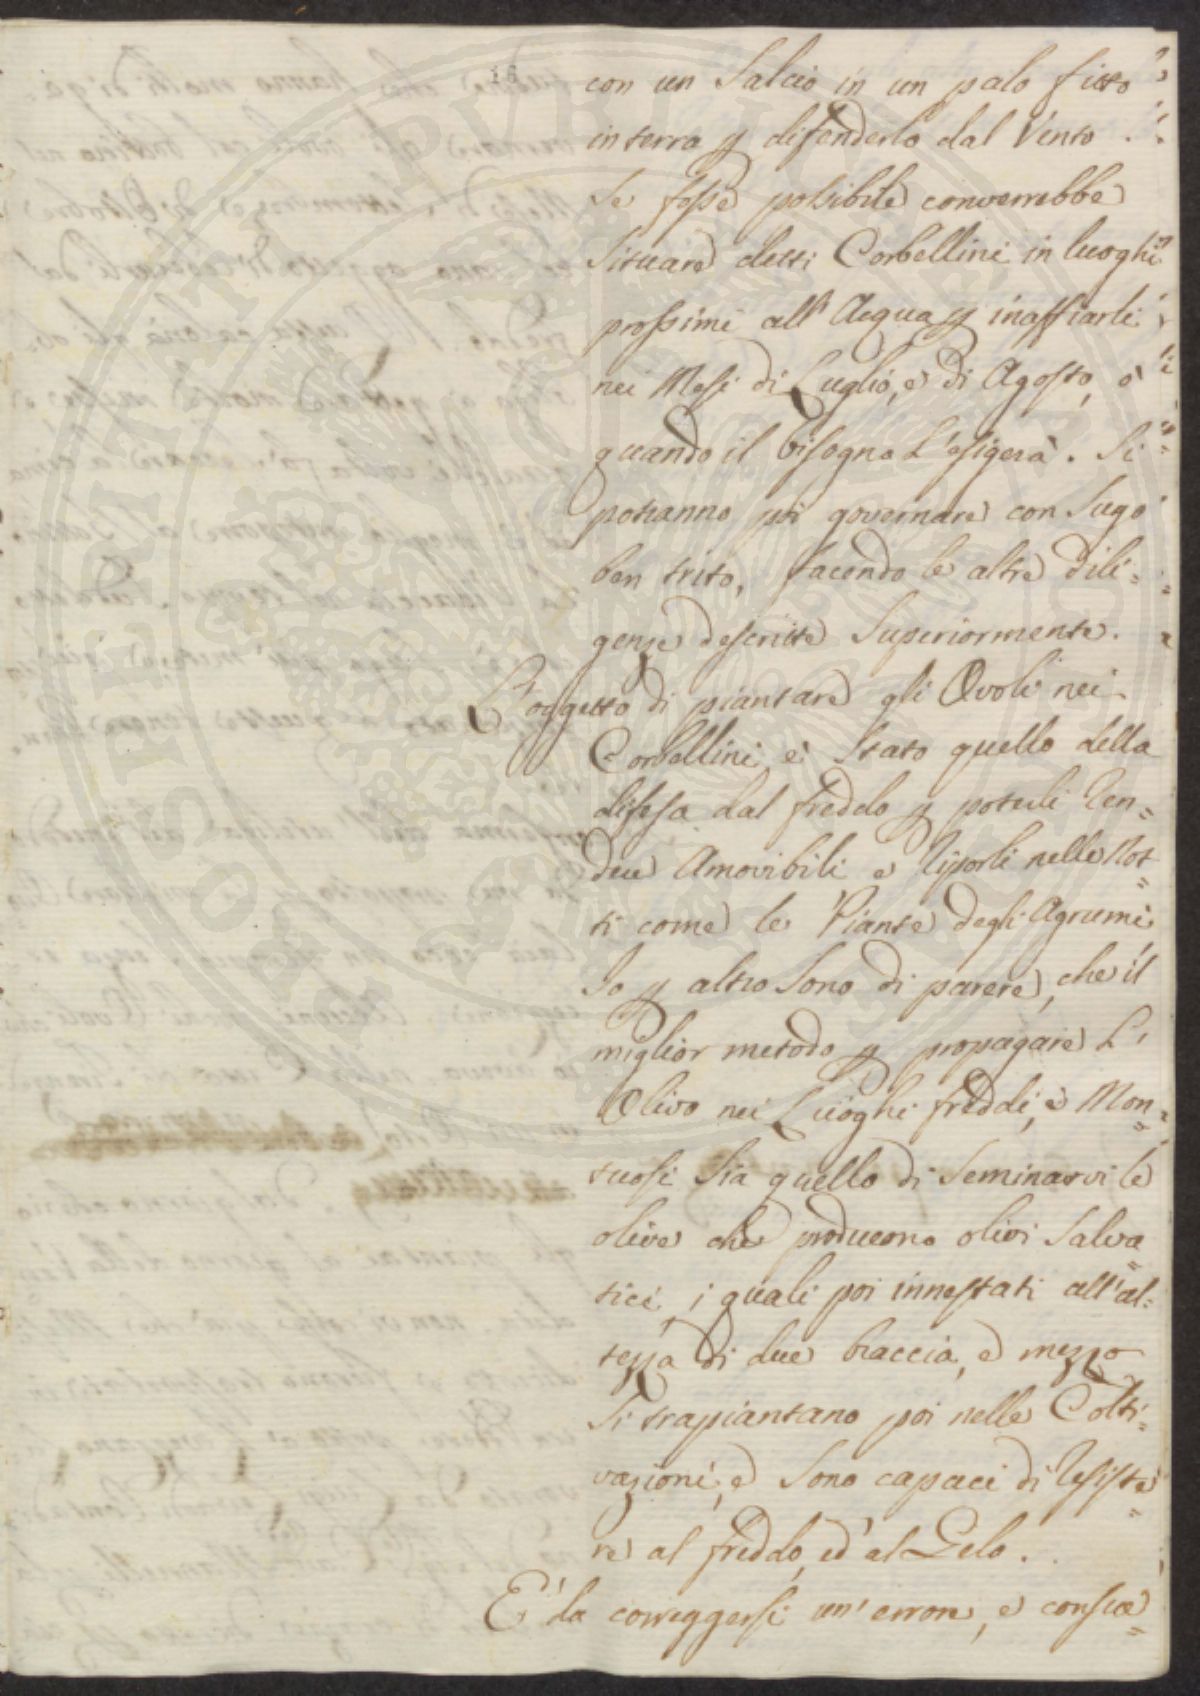 16
con un Salcio in un palo fitto
in terra p difenderlo dal Vento.
Se fosse possibile converrebbe
Situare detti Corbellini in luoghi
prossimi all'Acqua p inaffiarli
nei Mesi di Luglio, e di Agosto, o
quando il bisogno L'esigerà. Si
potranno poi governare con Sugo
ben trito, facendo le altre dili=
genze descritte Superiormente.
L'oggetto di piantare gli Ovoli nei
Corbellini, è Stato quello della
difesa dal freddo p poterli Ren=
dere Amovibili e Riporli nelle Not=
ti come le Piante degli Agrumi
Io p altro Sono di parere, che il
miglior metodo p propagare L'
Olivo nei Luoghi freddi, e Mon=
tuosi Sia quello di Seminarvi le
olive che producono olivi Salva=
tici, i quali poi innestati all'al=
tezza di due braccia, e mezzo
Si trapiantano poi nelle Colti=
vazioni, e Sono capaci di Resiste=
re al freddo, ed al Gelo.
E' da correggersi un'errore, e consue=
PROSPERITATI PUBLICAE